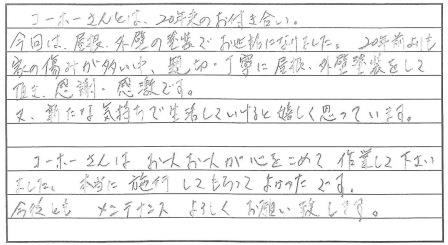 コーホーさんとは、20年来のお付き合い。
今回は、屋根、外壁の塗装でお世話になりました。20年前よりも
家の傷みが多い中、親切・丁寧に屋根、外壁塗装をして
頂き、感謝・感激です。
又、新たな気持ちで生活していけると嬉しく思っています。
コーホーさんはお一人お一人が心をこめて作業して下さい
ました。本当に施行してもらってよかったです。
今後ともメンテナンスよろしくお願い致します。